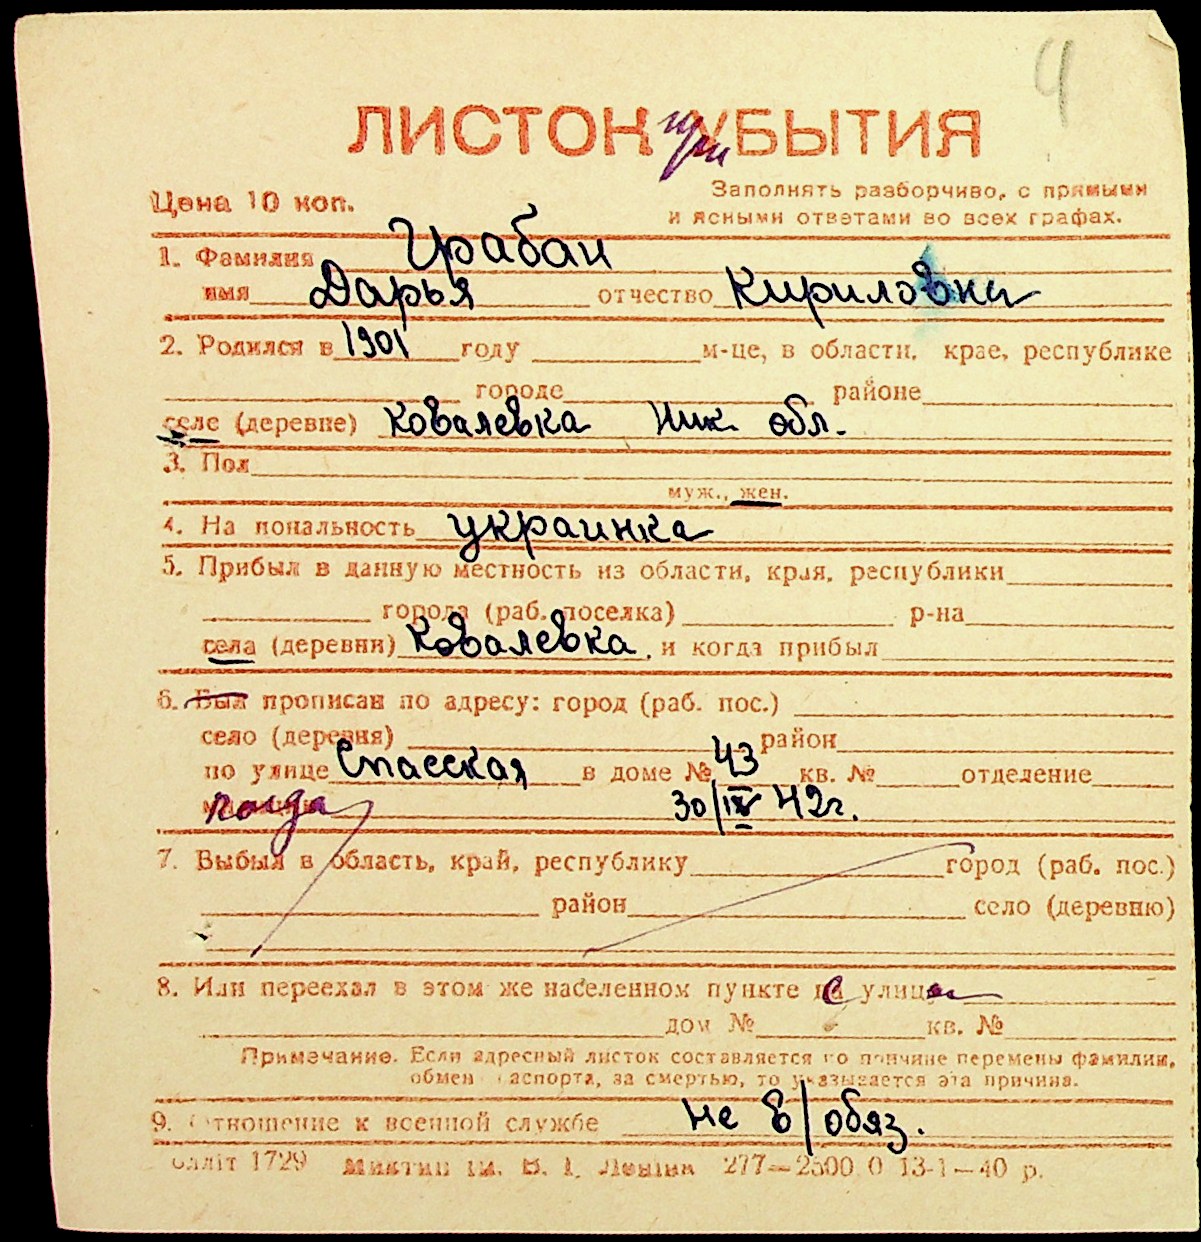 4
ЛИСТОК прибЫТИЯ
Цена 10 коп.
Заполнять разборчиво, с прямыми
и ясными ответами во всех графах.
1. Фамилия Грабан
имя Дарья отчество Кириловна
2. Родился в 1901 году м-це, в области, крае, республике
городе районе
селе (деревне) Ковалевка Ник. обл.
3. Пол
муж., жен.
4. На пональность украинка
5. Прибыл в данную местность из области, края, республики
города (раб. поселка) р-на
села (деревни) Ковалевка, и когда прибыл
6. Был прописан по адресу: город (раб. пос.)
село (деревня) район
по улице Спасская в доме № 43 кв. № отделение
когда 30/IV 42г.
7. Выбыл в область, край, республику город (раб. пос.)
район село (деревню)
8. Или переехал в этом же населенном пункте с улицы
дом № кв. №
Примечание. Если адресный листок составляется по причине перемены фамилии,
обмен паспорта, за смертью, то указывается эта причина.
9. Отношение к военной службе не в/обяз.
1729 В. І. Леніна 277—2500 0 13-1—40 р.